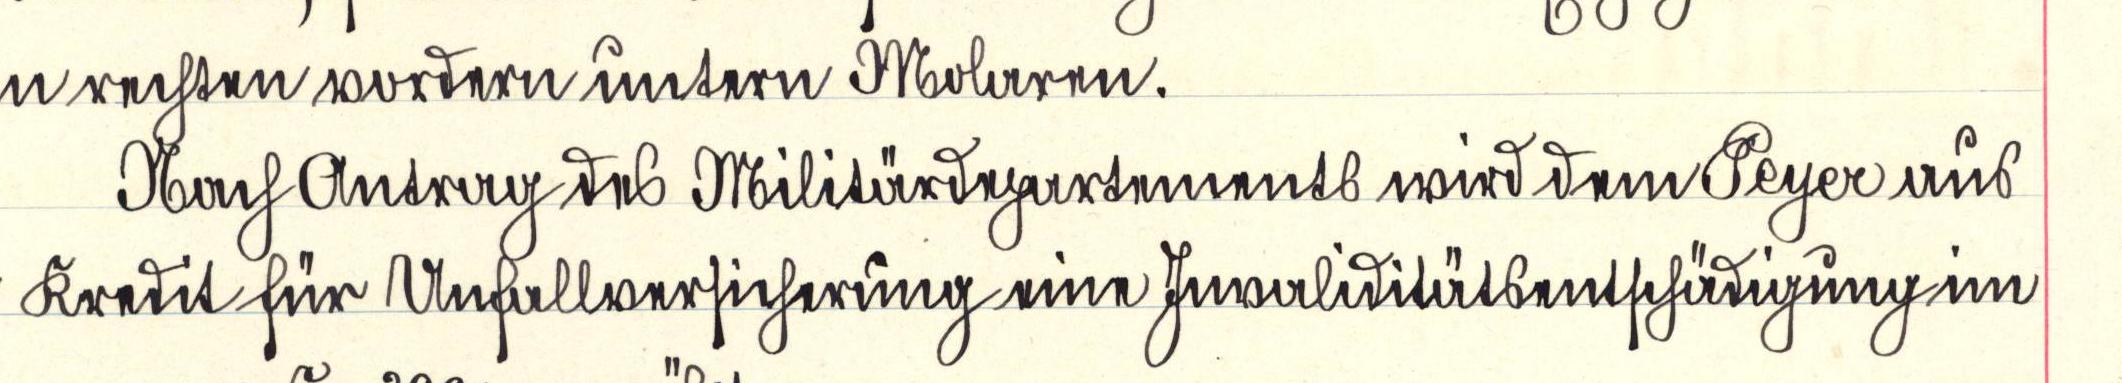 n rechten vordern untern Molaren.
Nach Antrag des Militärdepartements wird dem Peyer aus
Kredit für Unfallversicherung eine Invaliditätsentschädigung im